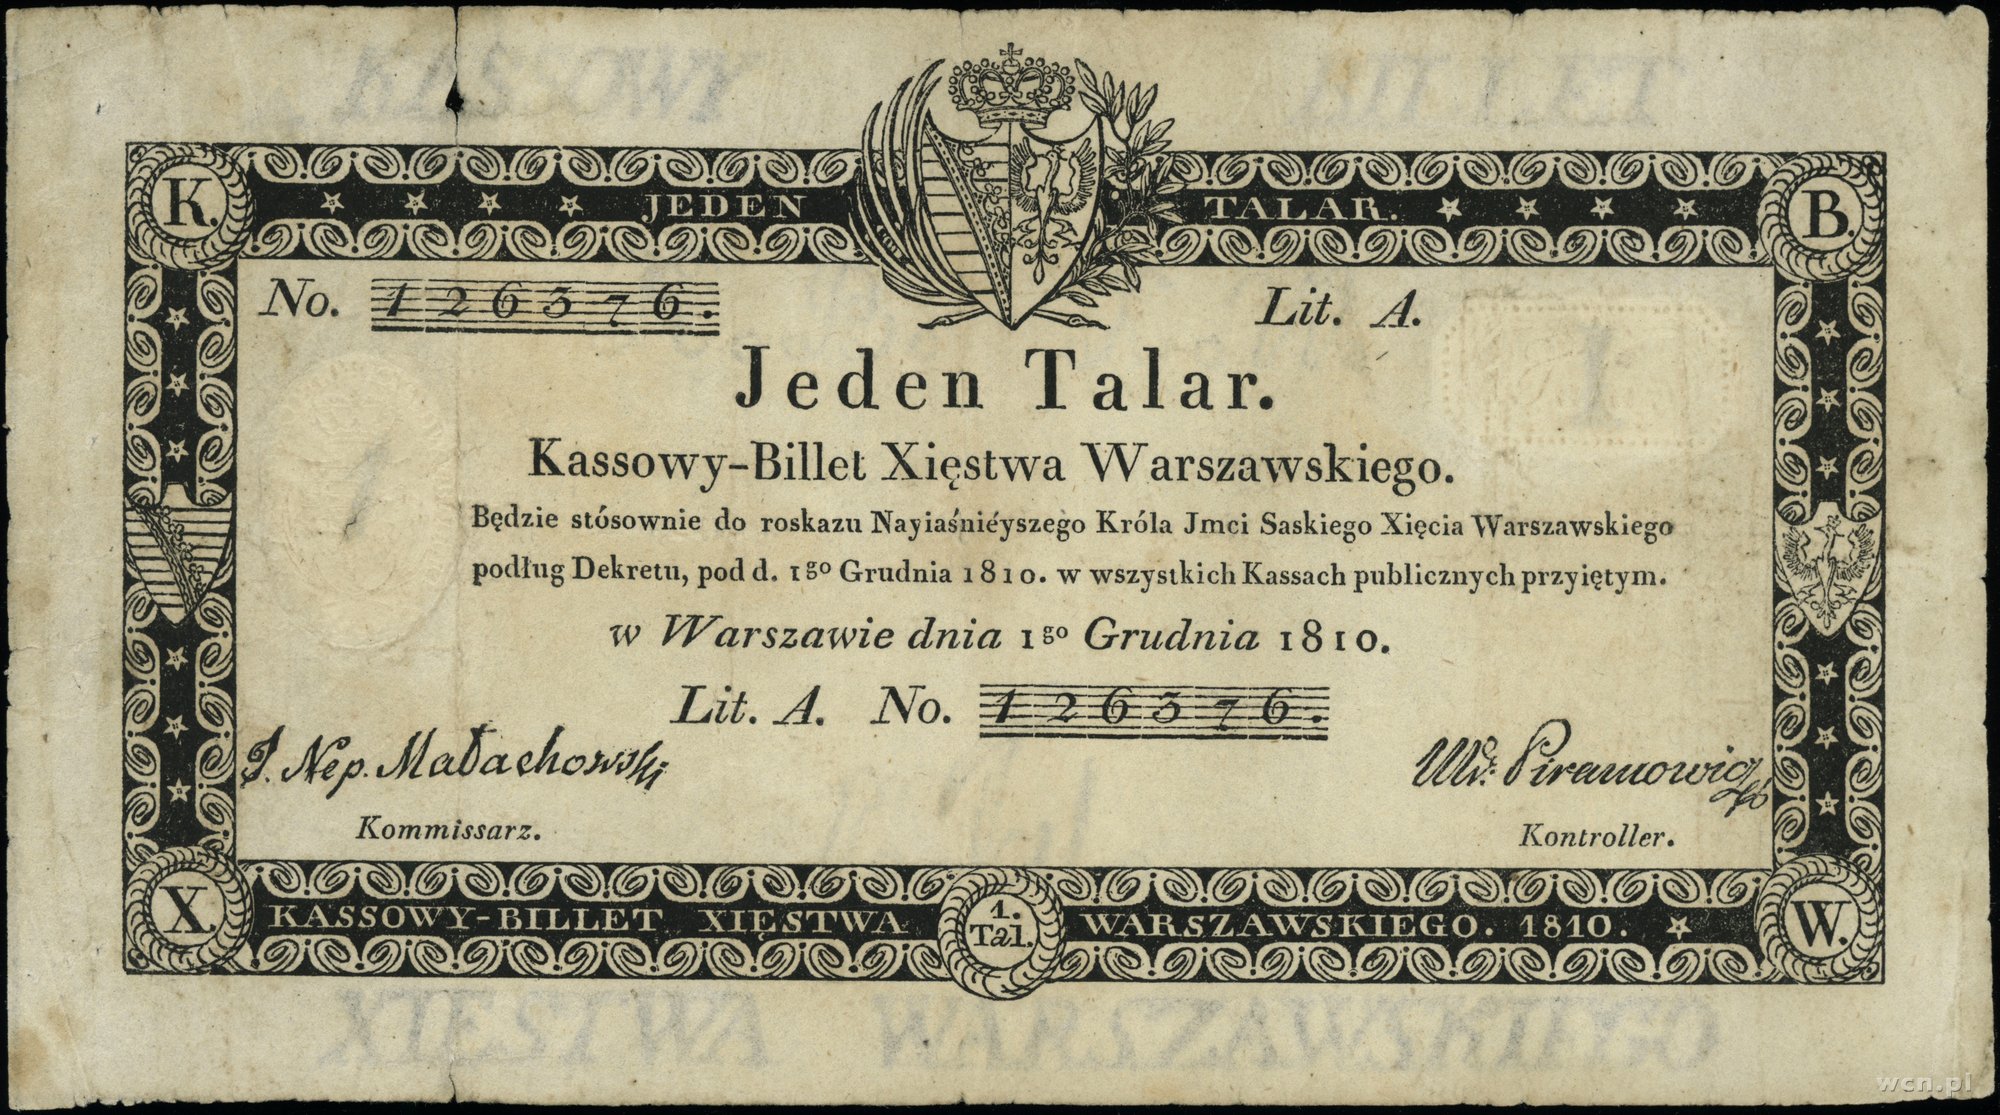 KASSOWY BILLET
K. JEDEN TALAR. B.
No. 126376. Lit. A.
1
Jeden Talar.
Kassowy-Billet Xięstwa Warszawskiego.
1
Będzie stósownie do roskazu Nayiaśniéyszego Króla Jmci Saskiego Xięcia Warszawskiego
podług Dekretu, pod d. 1go Grudnia 1810. w wszystkich Kassach publicznych przyiętym.
w Warszawie dnia 1go Grudnia 1810.
Lit. A. No. 126376.
J. Nep. Małachowski
Piramowicz
Kommissarz.
Kontroller.
X. KASSOWY-BILLET XIĘSTWA 1. Tal. WARSZAWSKIEGO. 1810. W.
XIĘSTWA WARSZAWSKIEGO
wcn.pl